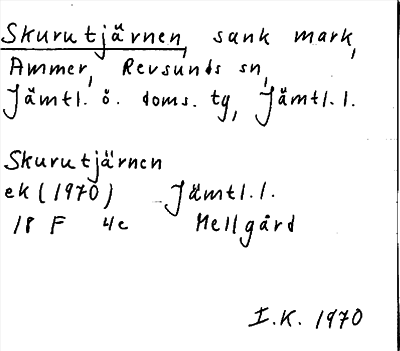 Skurutjärnen, sank mark,
Ammer, Revsunds sn,
Jämtl. ö. doms. tg, Jämtl. l.
Skurutjärnen
ek (1970) Jämtl. l.
18 F 4c Mellgård
I.K. 1970